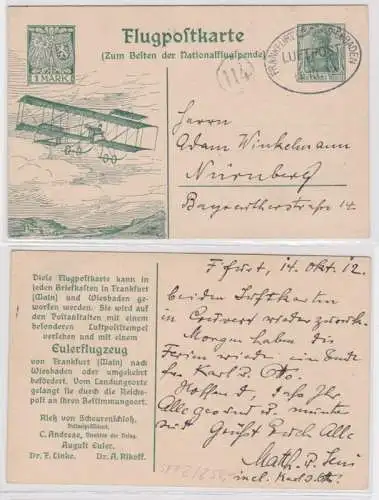 Flugpostkarte
(Zum Besten der Nationalflugspende)
1 MARK
114
LUFTPOST
Herrn
Adam Winkelmann
Nürnberg
Bayreutherstraße 14.
Diese Flugpostkarte kann in
jeden Briefkasten in Frankfurt
(Main) und Wiesbaden ge-
worfen werden. Sie wird auf
den Postanstalten mit einem
besonderen Luftpoststempel
versehen und mit einem
Eulerflugzeug
von Frankfurt (Main) nach
Wiesbaden oder umgekehrt
befördert. Vom Landungsorte
gelangt sie durch die Reichs-
post an ihren Bestimmungsort.
Rieß von Scheurnschloß,
Polizeipräsident.
C. Andreae,
August Euler.
Dr. F. Linke. Dr. A. Rikoff.
Ffurt, 14. Okt. 12.
beiden Luftkarten
in
Morgen haben die
Ferien wieder ein Ende
für Karl u. Otto.
Hoffend, dass Ihr
Alle gesund u. munter
seid Grüßt Euch Alle
Math.
incl.